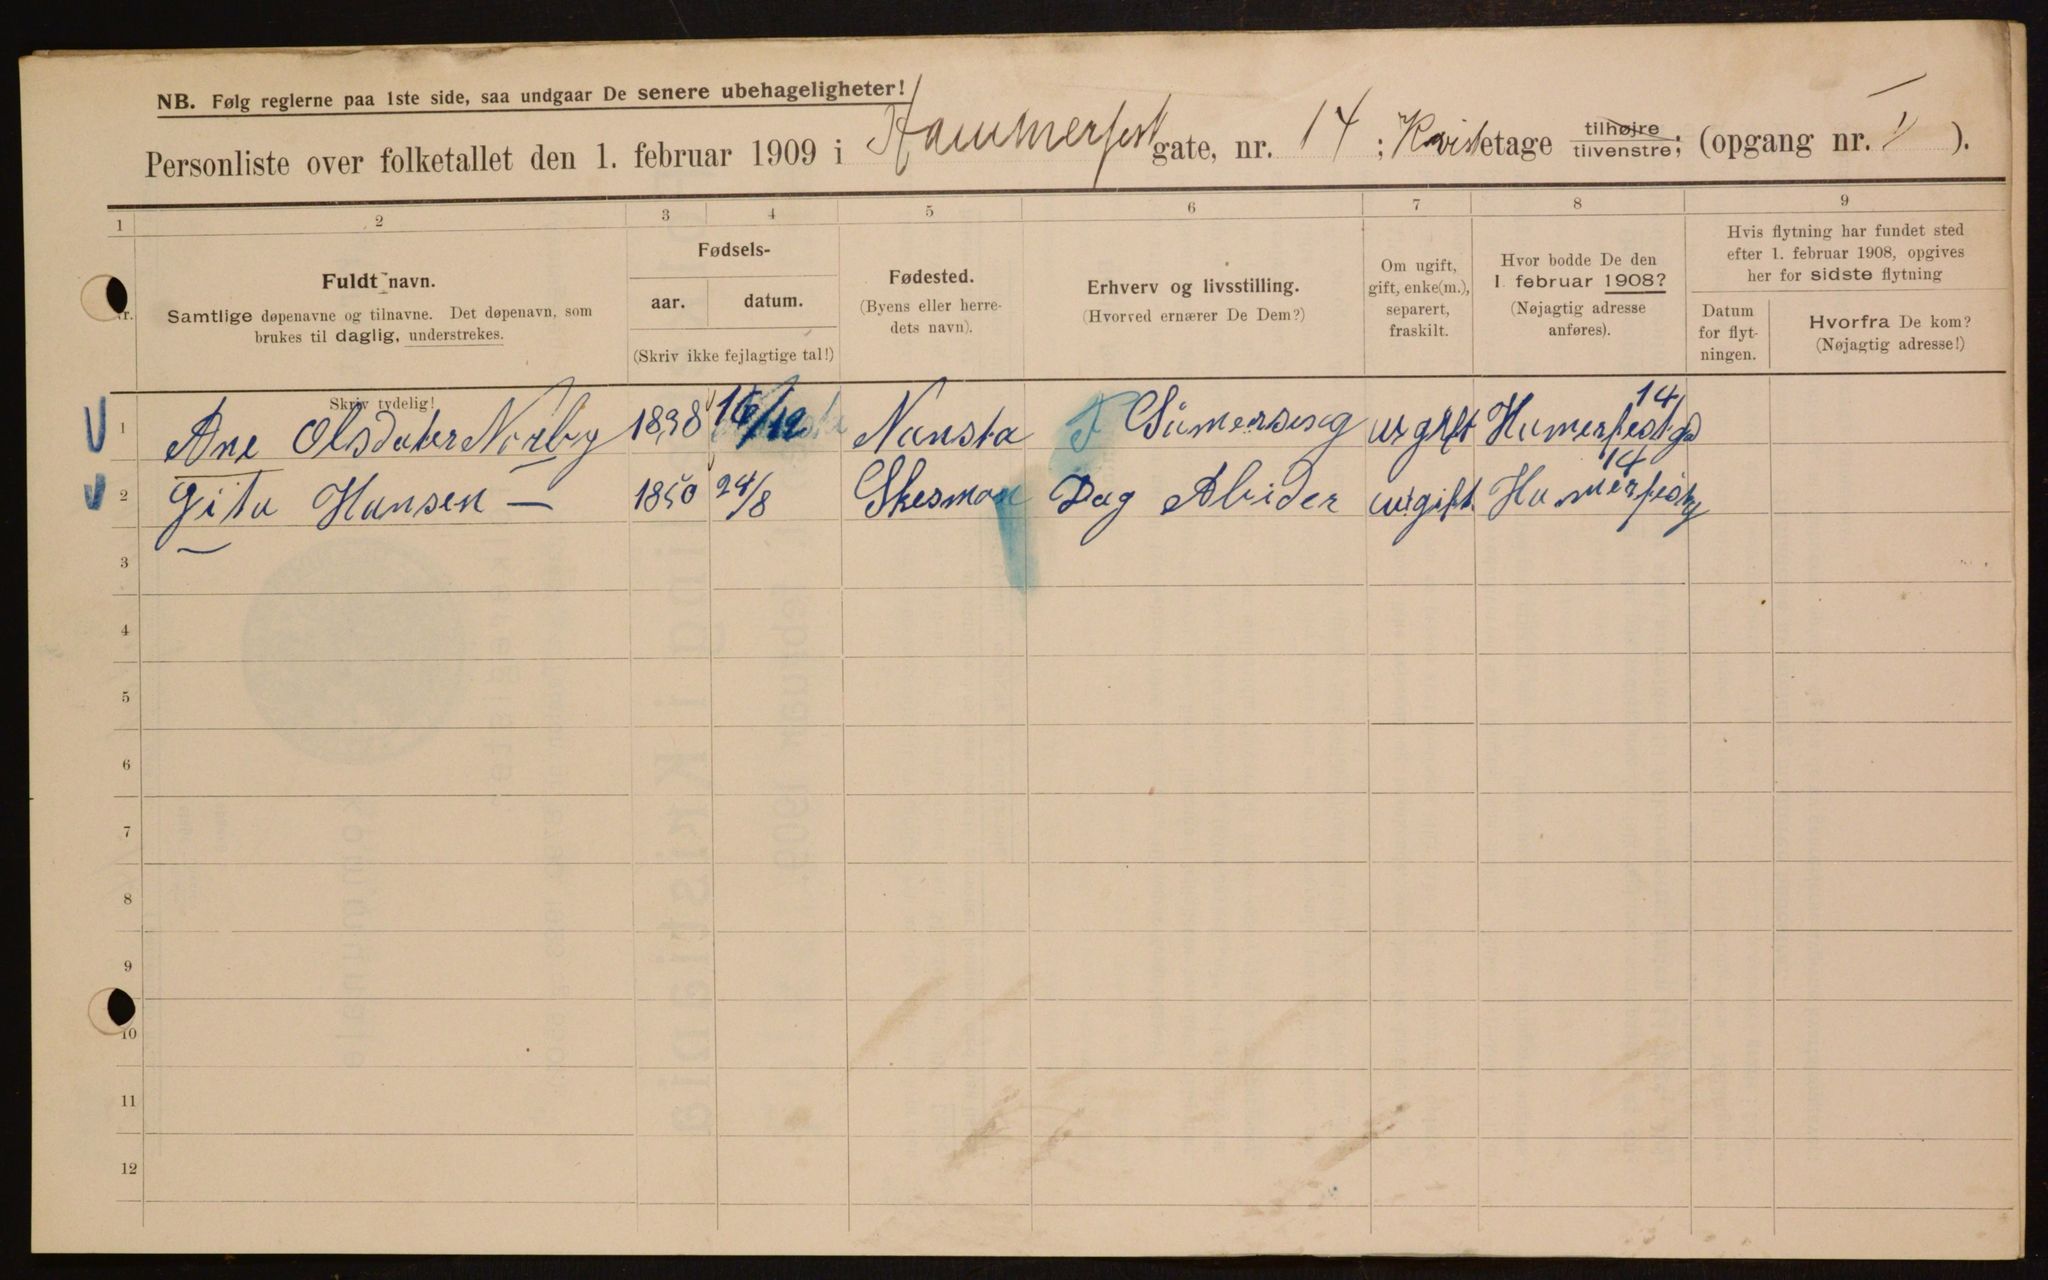 NB. Følg reglerne paa 1ste side, saa undgaar De senere ubehageligheter!
Personliste over folketallet den 1. februar 1909 i Hammerfest gate, nr. 14; Kvist etage tilhøjre tilvenstre; (opgang nr. ).
1 2 3 4 5 6 7 8 9
Nr.
Fuldt navn.
Samtlige døpenavne og tilnavne. Det døpenavn, som
brukes til daglig, understrekes.
Skriv tydelig!
Fødsels-
aar. datum.
(Skriv ikke fejlagtige tal!)
Fødested.
(Byens eller herre-
dets navn).
Erhverv og livsstilling.
(Hvorved ernærer De Dem?)
Om ugift,
gift, enke(m.),
separert,
fraskilt.
Hvor bodde De den
1. februar 1908?
(Nøjagtig adresse
anføres).
Hvis flytning har fundet sted
efter 1. februar 1908, opgives
her for sidste flytning
Datum
for flyt-
ningen.
Hvorfra De kom?
(Nøjagtig adresse!)
1 Ane Olsdater Norby 16/12 Nansta ugift Hamerfestgd 14
2 Gita Hansen — 1850 24/8 Skesmon Dag Abider ugift Hamerfestg 14
3
4
5
6
7
8
9
10
11
12